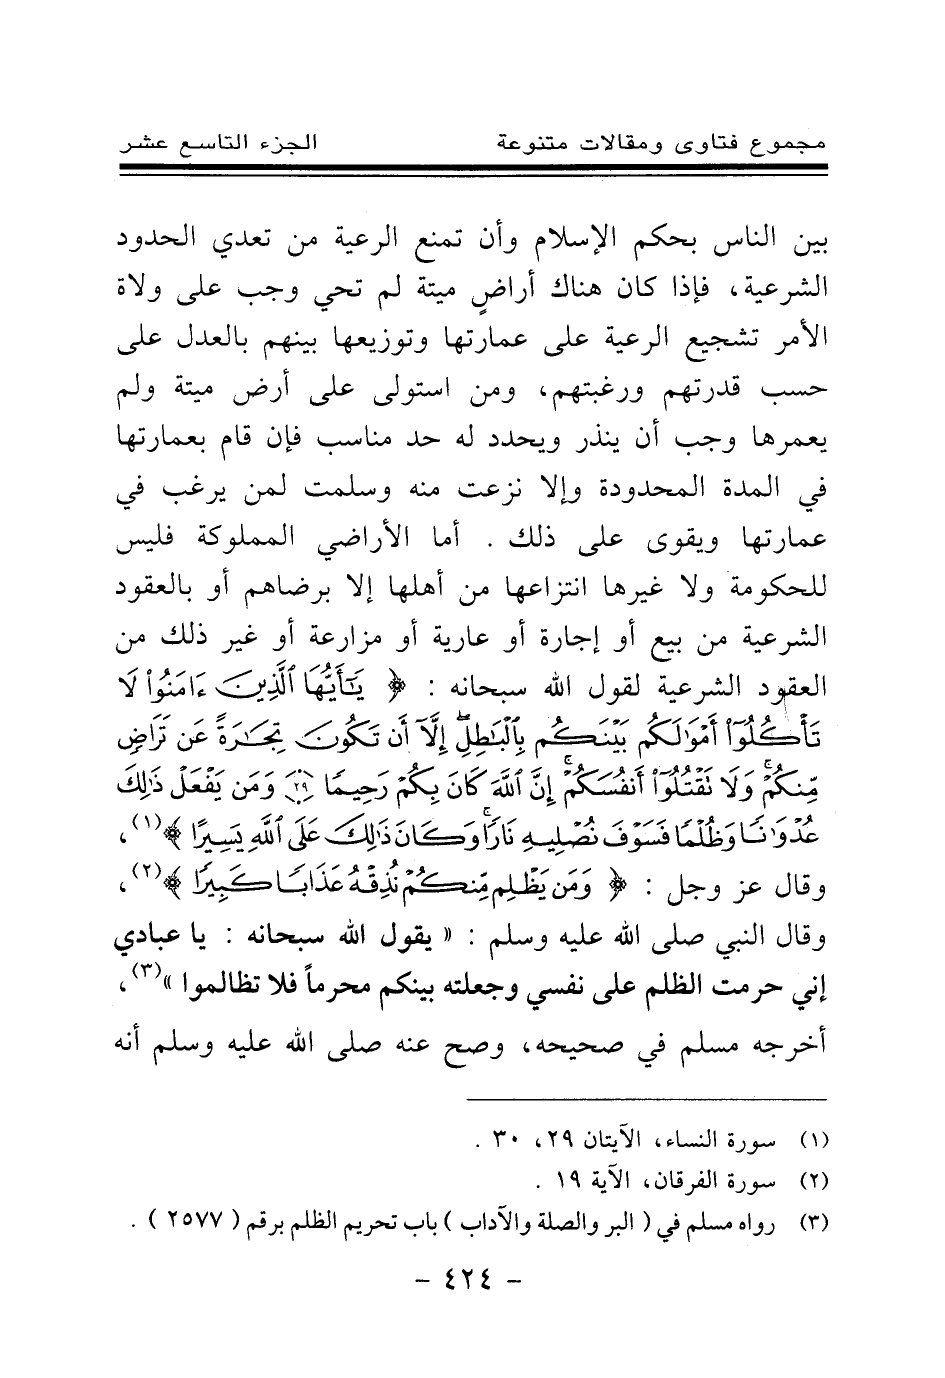 مجموع فتاوى ومقالات متنوعة الجزء التاسع عشر
بين الناس بحكم الإسلام وأن تمنع الرعية من تعدي الحدود
الشرعية، فإذا كان هناك أراضٍ ميتة لم تحي وجب على ولاة
الأمر تشجيع الرعية على عمارتها وتوزيعها بينهم بالعدل على
حسب قدرتهم ورغبتهم، ومن استولى على أرض ميتة ولم
يعمرها وجب أن ينذر ويحدد له حد مناسب فإن قام بعمارتها
في المدة المحدودة وإلا نزعت منه وسلمت لمن يرغب في
عمارتها ويقوى على ذلك . أما الأراضي المملوكة فليس
للحكومة ولا غيرها انتزاعها من أهلها إلا برضاهم أو بالعقود
الشرعية من بيع أو إجارة أو عارية أو مزارعة أو غير ذلك من
العقود الشرعية لقول الله سبحانه : ﴿ يَٰٓأَيُّهَا ٱلَّذِينَ ءَامَنُوا۟ لَا
تَأْكُلُوٓا۟ أَمْوَٰلَكُم بَيْنَكُم بِٱلْبَٰطِلِ إِلَّآ أَن تَكُونَ تِجَٰرَةً عَن تَرَاضٍ
مِّنكُمْ ۚ وَلَا تَقْتُلُوٓا۟ أَنفُسَكُمْ ۚ إِنَّ ٱللَّهَ كَانَ بِكُمْ رَحِيمًا ٢٩ وَمَن يَفْعَلْ ذَٰلِكَ
عُدْوَٰنًا وَظُلْمًا فَسَوْفَ نُصْلِيهِ نَارًا ۚ وَكَانَ ذَٰلِكَ عَلَى ٱللَّهِ يَسِيرًا ﴾(١)،
وقال عز وجل : ﴿ وَمَن يَظْلِم مِّنكُمْ نُذِقْهُ عَذَابًا كَبِيرًا ﴾(٢)،
وقال النبي صلى الله عليه وسلم : « يقول الله سبحانه : يا عبادي
إني حرمت الظلم على نفسي وجعلته بينكم محرماً فلا تظالموا »(٣)،
أخرجه مسلم في صحيحه، وصح عنه صلى الله عليه وسلم أنه
(١) سورة النساء، الآيتان ٢٩، ٣٠ .
(٢) سورة الفرقان، الآية ١٩ .
(٣) رواه مسلم في ( البر والصلة والآداب ) باب تحريم الظلم برقم ( ٢٥٧٧ ) .
- ٤٢٤ -